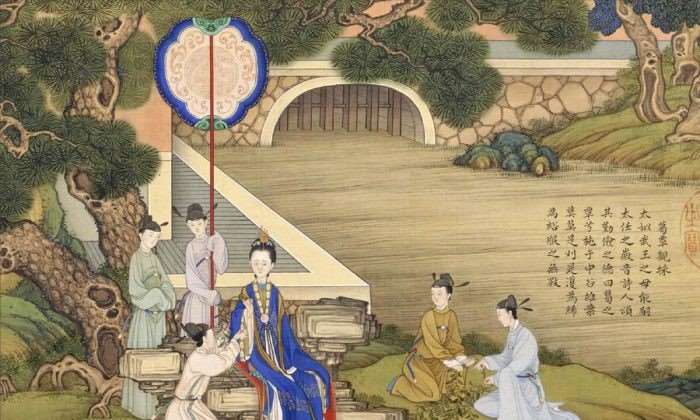 葛覃親採
太姒武王之母能嗣
太任之徽音詩人頌
其勤儉之德曰葛之
覃兮施于中谷維葉
莫莫是刈是濩為絺
為綌服之無斁